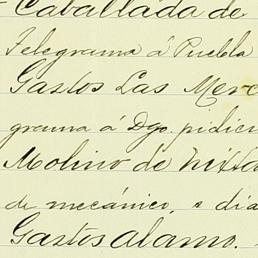 Caballada de
Telegrama á Puebla
Gastos Las Merc
grama á Dgo. pidien
Molino de Nixta
de mecánico, 2 dia
Gastos Alamo.